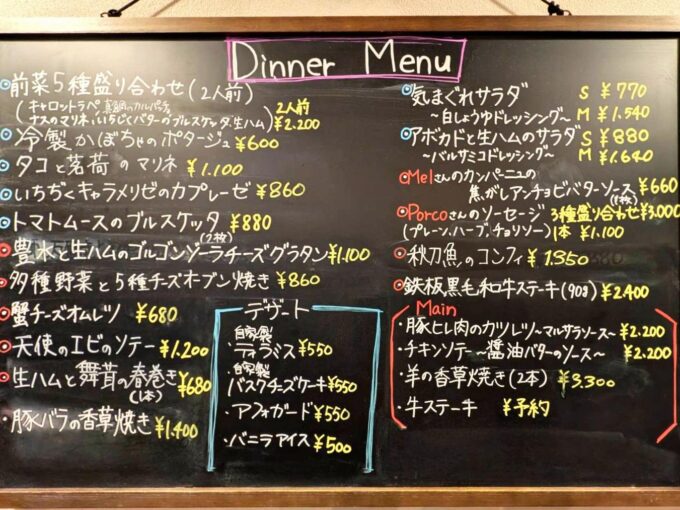 Dinner Menu
前菜5種盛り合わせ(2人前)
(キャロットラペ 真鯛のカルパッチョ 2人前
ナスのマリネ、いちじくバターのブルスケッタ、生ハム) ¥2.200
冷製かぼちゃのポタージュ ¥600
タコと茗荷のマリネ ¥1.100
いちぢくキャラメリゼのカプレーゼ ¥860
トマトムースのブルスケッタ ¥880
(2枚)
豊水と生ハムのゴルゴンゾーラチーズグラタン ¥1.100
多種野菜と5種チーズオーブン焼き ¥860
蟹チーズオムレツ ¥680
天使のエビのソテー ¥1.200
生ハムと舞茸の春巻き ¥680
(1本)
豚バラの香草焼き ¥1.400
デザート
自家製
ティラミス ¥550
自家製
バスクチーズケーキ ¥550
アフォガード ¥550
バニラアイス ¥500
気まぐれサラダ S ¥770
~白しょうゆドレッシング~ M ¥1.540
アボカドと生ハムのサラダ S ¥880
~バルサミコドレッシング~ M ¥1.640
Melさんのカンパーニュの
焦がしアンチョビバターソース ¥660
(1枚)
Porcoさんのソーセージ 3種盛り合わせ ¥3.000
(プレーン、ハーブ、チョリソー) 1本 ¥1.100
秋刀魚のコンフィ ¥1.350
鉄板黒毛和牛ステーキ(90g) ¥2.400
Main
・豚ヒレ肉のカツレツ~マルサラソース~ ¥2.200
・チキンソテー~醤油バターのソース~ ¥2.200
・羊の香草焼き(2本) ¥3.300
・牛ステーキ ¥予約